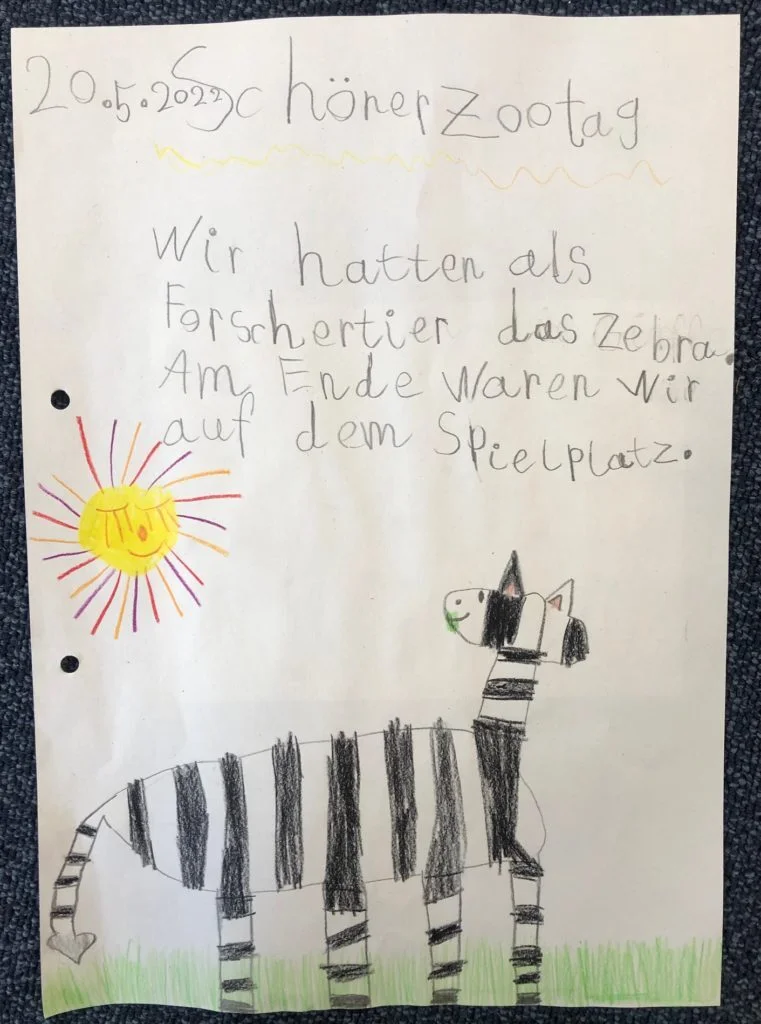 20.5.2022 Schöner Zootag
Wir hatten als
Forschertier das Zebra.
Am Ende waren wir
auf dem Spielplatz.